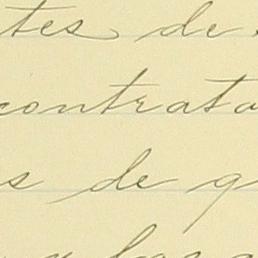 tes de
contrata
s de g
y las